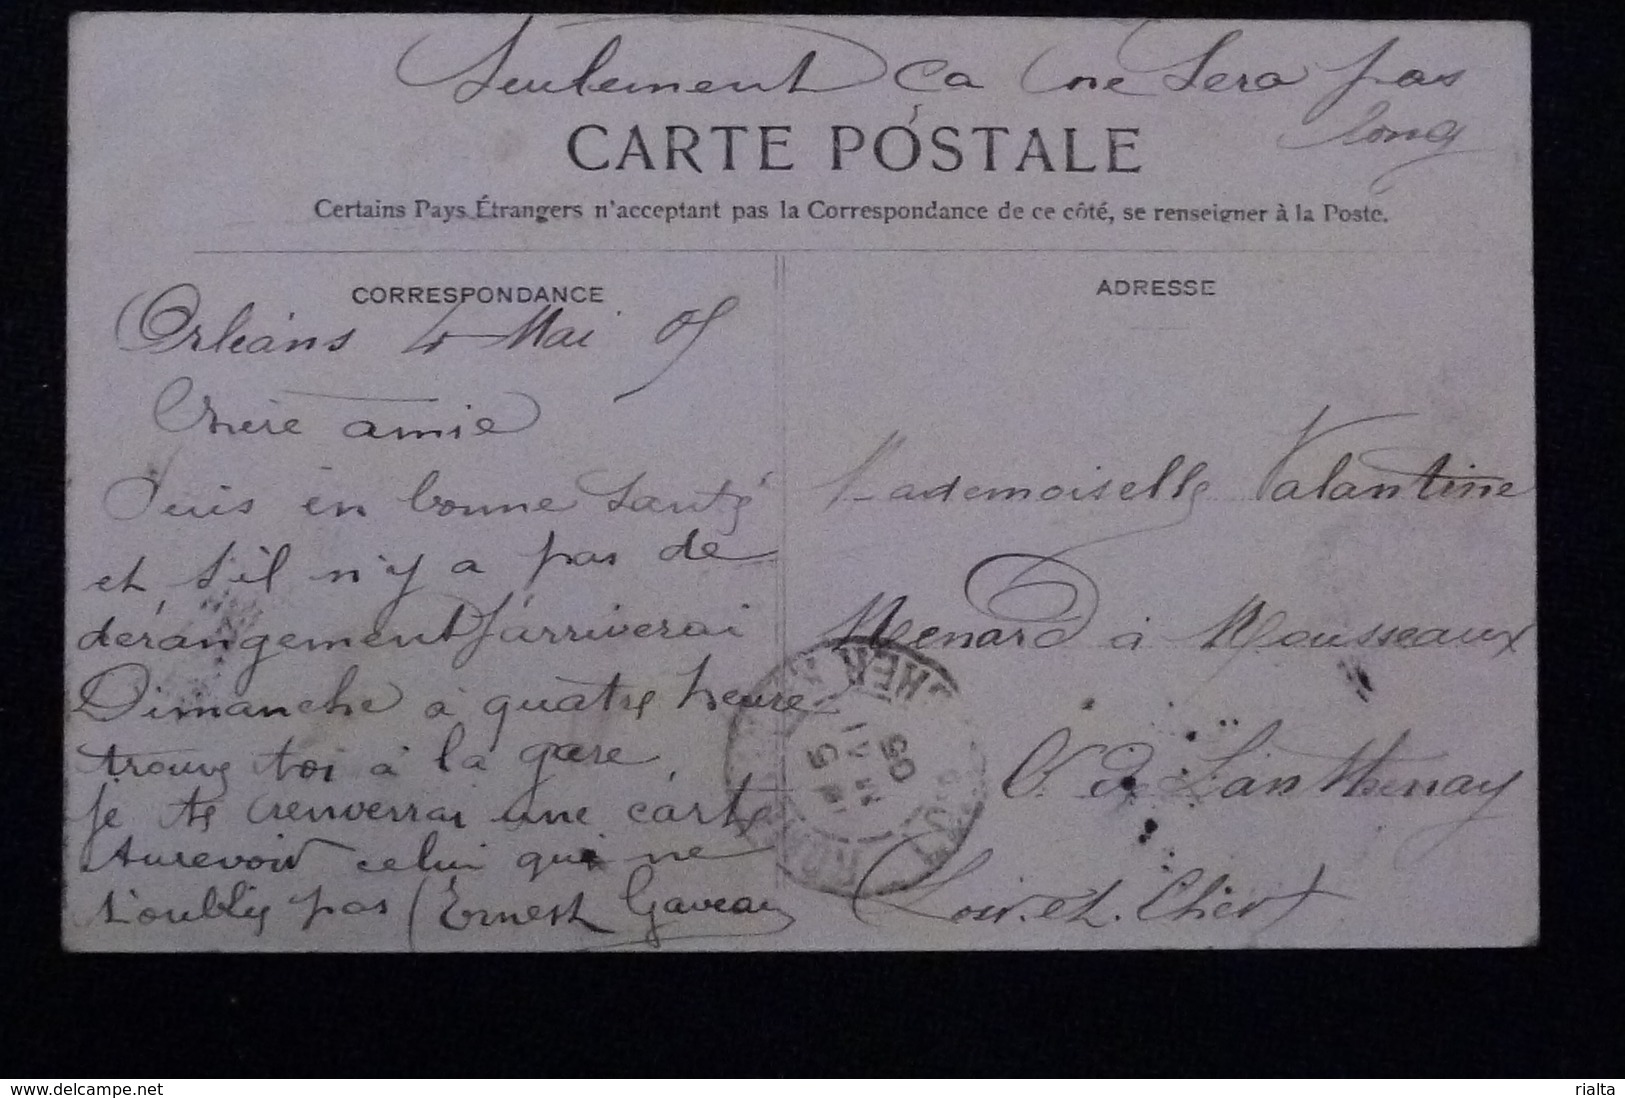 Seulement ça ne sera pas
long
CARTE POSTALE
Certains Pays Étrangers n'acceptent pas la Correspondance de ce côté, se renseigner à la Poste.
CORRESPONDANCE
Orléans 4 Mai 05
Chère amie
Suis en bonne santé
et s'il n'y a pas de
dérangement j'arriverai
Dimanche à quatre heure
trouve toi à la gare
je te renverrai une carte
Aurevoir celui qui ne
t'oublie pas Ernest Gaveau
ADRESSE
Mademoiselle Valantine
Menard à Mousseaux
C. de Lanthenay
Loir-et-Cher
05
delcampe.net
rialta